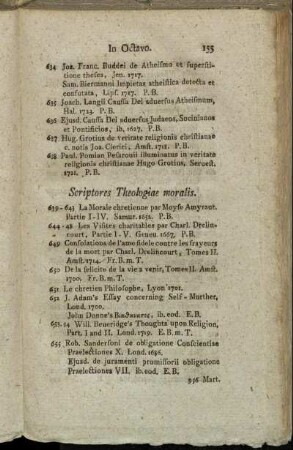 In Octavo. 155
634 Joa. Franc. Buddei de Atheismo et supersti-
tione theses, Jen. 1717.
Sam. Biermanni Impietas atheistica detecta et
confutata, Lips. 1717. P. B.
635 Joach. Langii Caussa Dei aduersus Atheismum,
Hal. 1723. P. B.
636 Ejusd. Caussa Dei aduersus Judaeos, Socinianos
et Pontificios, ib. 1627. P. B.
637 Hug. Grotius de veritate religionis christianae
c. notis Joa. Clerici, Amst. 1711. P. B.
638 Paul. Pomian Pesarouii illuminatus in veritate
religionis christianae Hugo Grotius, Seruest.
1721. P. B.
Scriptores Theologiae moralis.
639-643 La Morale chretienne par Moyse Amyraut.
Partie I-IV. Samur. 1652. P. B.
644-48 Les Visites charitables par Charl. Drelin-
court, Partie I-V. Geneu. 1667. P. B.
649 Consolations de l'ame fidele contre les frayeurs
de la mort par Charl. Drelincourt, Tomes II.
Amst. 1714. Fr. B. m. T.
650 De la felicité de la vie a venir, Tomes II. Amst.
1700. Fr. B. m. T.
651 Le chretien Philosophe, Lyon 1701.
652 J. Adam's Essay concerning Self-Murther,
Lond. 1700.
John Donne's ib. eod. E. B.
653.54 Will. Beueridge's Thoughts upon Religion,
Part. I and II. Lond. 1719. E. B. m. T.
655 Rob. Sandersoni de obligatione Conscientiae
Praelectiones X. Lond. 1696.
Ejusd. de juramenti promissorii obligatione
Praelectiones VII. ib. eod. E. B.
656 Mart.